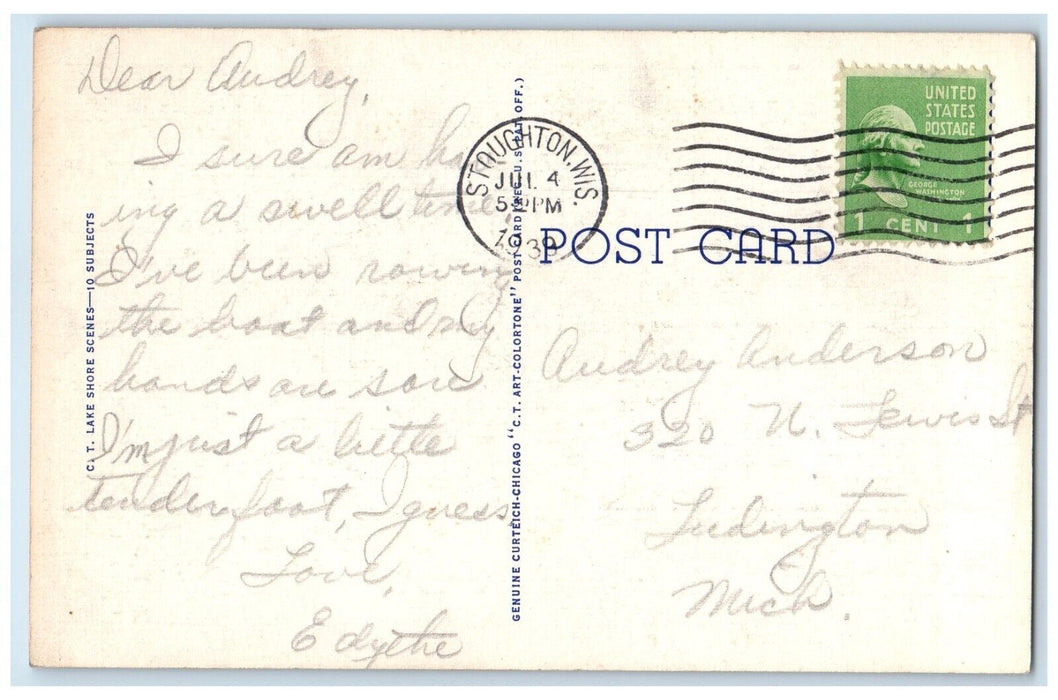 Dear Audrey,
I sure am hav
ing a swell time,
I've been rowing
the boat and my
hands are sore
I'm just a little
tenderfoot, I guess.
Love,
Edythe
C. T. LAKE SHORE SCENES—10 SUBJECTS
GENUINE CURTEICH-CHICAGO "C.T. ART-COLORTONE" POST CARD (REG. U. S. PAT. OFF.)
STOUGHTON, WIS.
JUL 4
PM
1939
POST CARD
UNITED
STATES
POSTAGE
GEORGE
WASHINGTON
1 CENT 1
Audrey Anderson
320 N. Lewis St
Ludington
Mich.